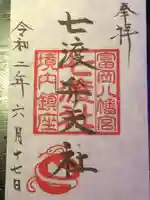 奉拝
富岡八幡宮
七渡弁天社
境内鎮座
令和二年六月十七日